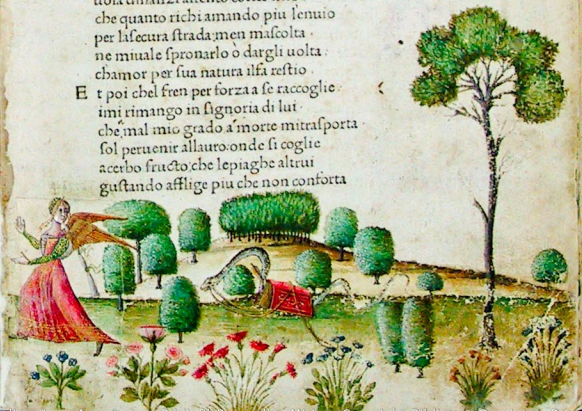 uola dinanzi allento
che quanto richi amando piu lenuio
per lasecura strada;men mascolta
ne miuale spronarlo o dargli uolta
chamor per sua natura ilfa restio
E t poi chel fren per forza a se raccoglie
imi rimango in signoria di lui
che mal mio grado a morte mitrasporta
sol peruenir allauro:onde si coglie
acerbo fructo:che lepiaghe altrui
gustando afflige piu che non conforta